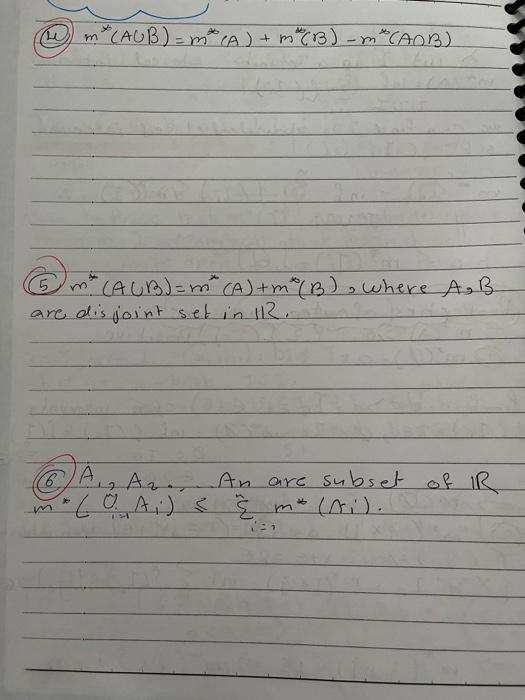 ④ m*(A∪B) = m*(A) + m*(B) - m*(A∩B)
⑤ m*(A∪B) = m*(A) + m*(B), where A, B
are disjoint set in IR.
⑥ A₁, A₂, ... An are subset of IR
m*(∪ᵢ₌₁ⁿ Aᵢ) ≤ Σᵢ₌₁ⁿ m*(Aᵢ).